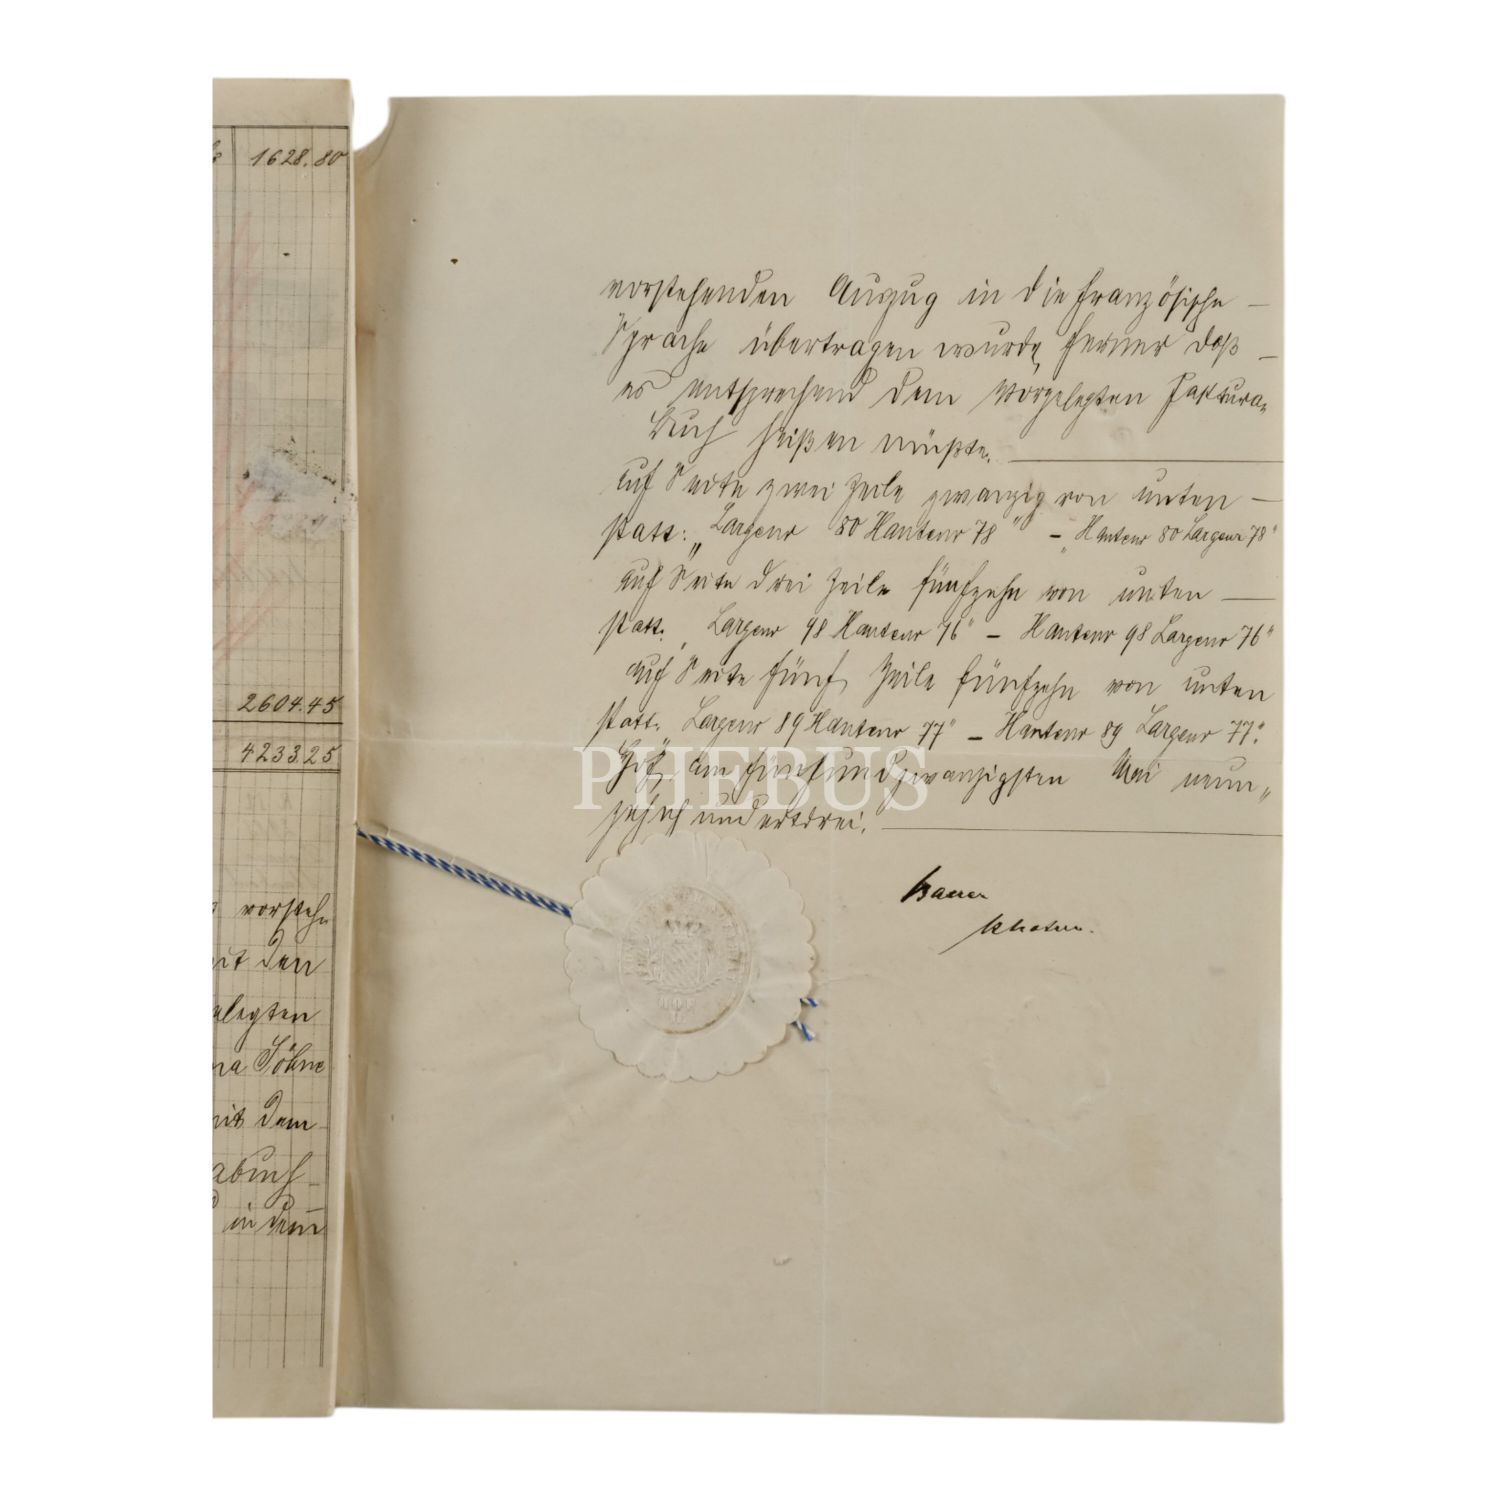 1628.80
2604.45
4233.25
vorstehen
mit den
elegten
na Söhne
mit dem
abuch
in dem
vorstehenden Auszug in die französische —
Sprache übertragen wurde, ferner daß —
es entsprechend dem vorgelegten Faktura-
buch heißen müßte.
auf Seite zwei Zeile zwanzig von unten —
statt: „Largeur 80 Hauteur 78" – „Hauteur 80 Largeur 78"
auf Seite drei Zeile fünfzehn von unten —
statt: „Largeur 98 Hauteur 76" – Hauteur 98 Largeur 76"
auf Seite fünf Zeile fünfzehn von unten
statt: „Largeur 89 Hauteur 77" – Hauteur 89 Largeur 77".
Hof, am fünfundzwanzigsten Mai neun-
zehnhundertdrei.
PHEBUS